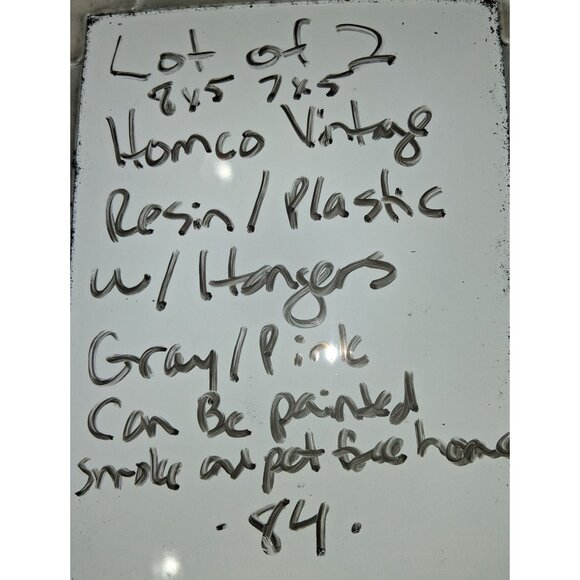 Lot of 2
8x5 7x5
Homco Vintage
Resin / Plastic
w/ Hangers
Gray / Pink
Can Be painted
smoke and pet free home
. 84 .